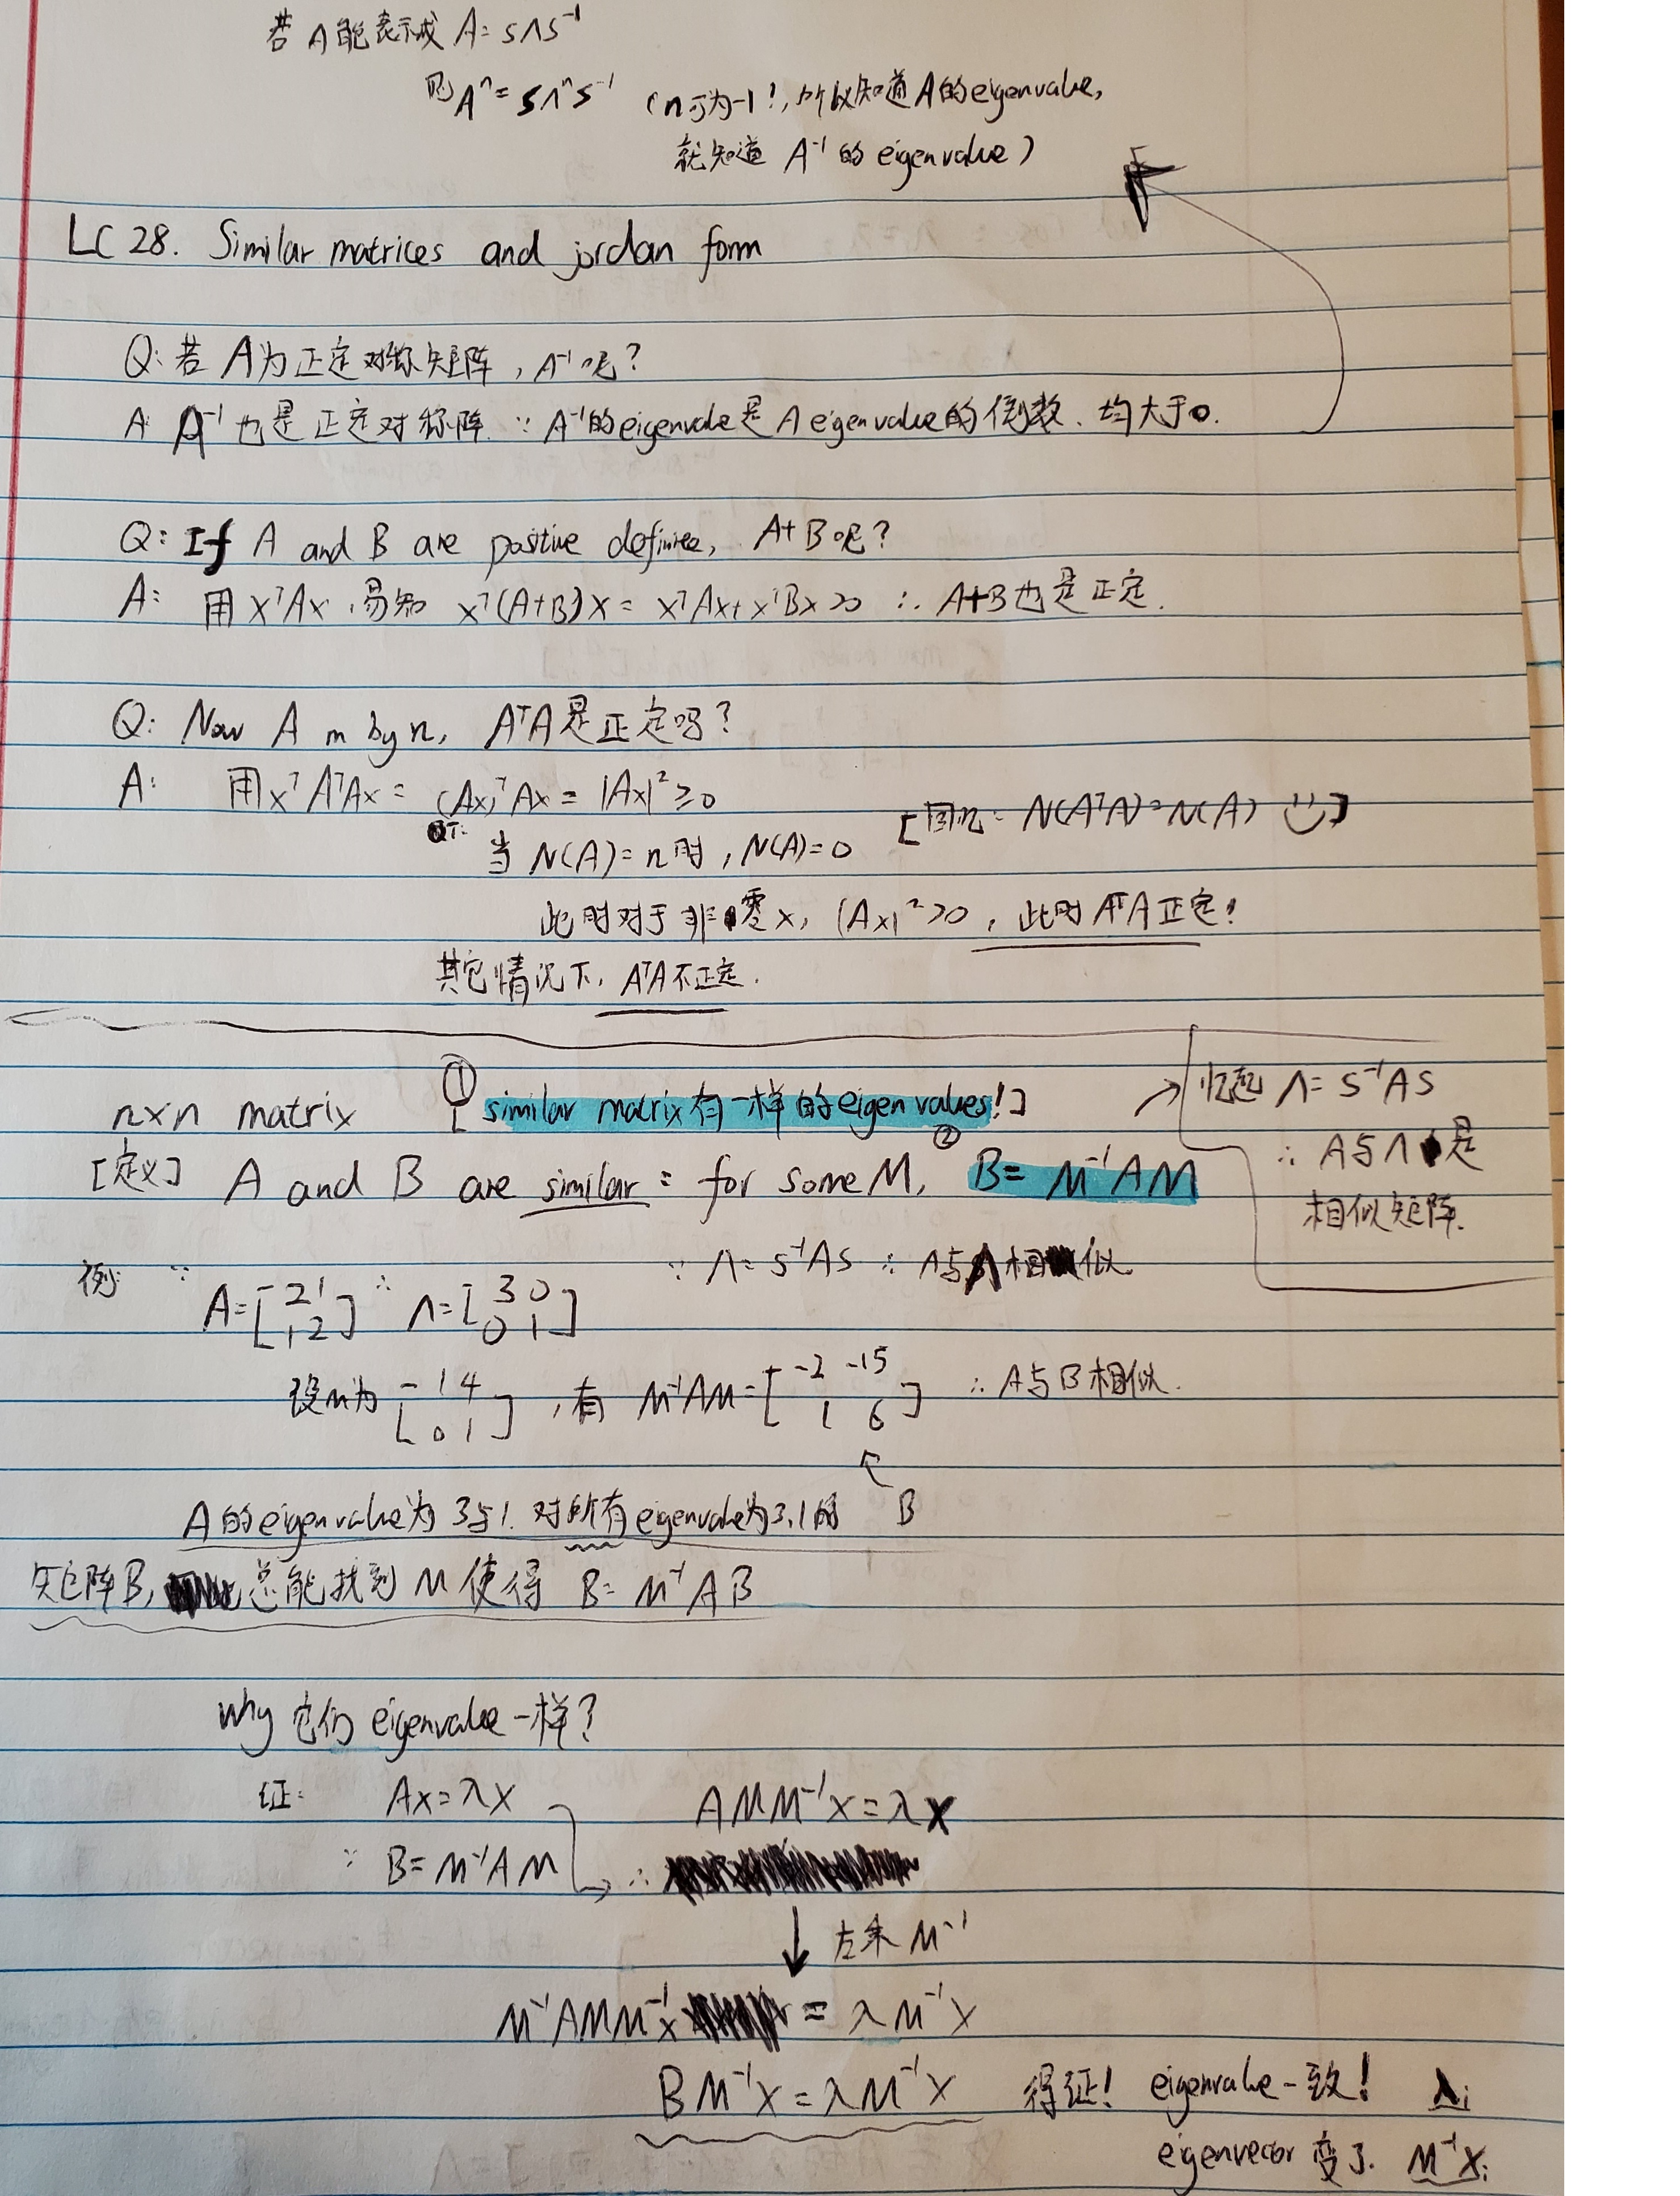 若 A 能表示成 A = SΛS⁻¹
则 Aⁿ = SΛⁿS⁻¹ (n可为-1!, 所以知道A的eigenvalue,
就知道 A⁻¹ 的 eigenvalue)
LC 28. Similar matrices and jordan form
Q: 若 A为正定对称矩阵, A⁻¹呢?
A: A⁻¹ 也是正定对称阵. ∵ A⁻¹的eigenvalue是A eigenvalue的倒数、均大于0.
Q: If A and B are positive definite, A+B呢?
A: 用 xᵀAx, 易知 xᵀ(A+B)x = xᵀAx + xᵀBx > 0 ∴ A+B也是正定.
Q: Now A m by n, AᵀA是正定吗?
A: 用xᵀAᵀAx = (Ax)ᵀAx = |Ax|² ≥ 0
[回忆: N(AᵀA) = N(A) ]
当 N(A) = n 时, N(A) = 0
此时对于非零x, |Ax|² > 0, 此时AᵀA正定!
其它情况下, AᵀA不正定.
n×n matrix ① [similar matrix有一样的eigenvalues!]
[定义] A and B are similar: for some M, ② B = M⁻¹AM
→ 忆起 Λ = S⁻¹AS
∴ A与Λ是
相似矩阵.
例: ∵ A = [2 1; 1 2] ∴ Λ = [3 0; 0 1] ∵ Λ = S⁻¹AS ∴ A与Λ相似
设M为 [1 4; 0 1], 有 M⁻¹AM = [-2 -15; 1 6] ∴ A与B相似.
B
A的eigenvalue为3与1. 对所有eigenvalue为3,1的
矩阵B, 总能找到 M 使得 B = M⁻¹AB
Why 它们 eigenvalue一样?
证: Ax = λx AMM⁻¹x = λx
∵ B = M⁻¹AM ∴
↓ 左乘 M⁻¹
M⁻¹AMM⁻¹x = λM⁻¹x
BM⁻¹x = λM⁻¹x 得证! eigenvalue一致! λᵢ
eigenvector 变了. M⁻¹xᵢ